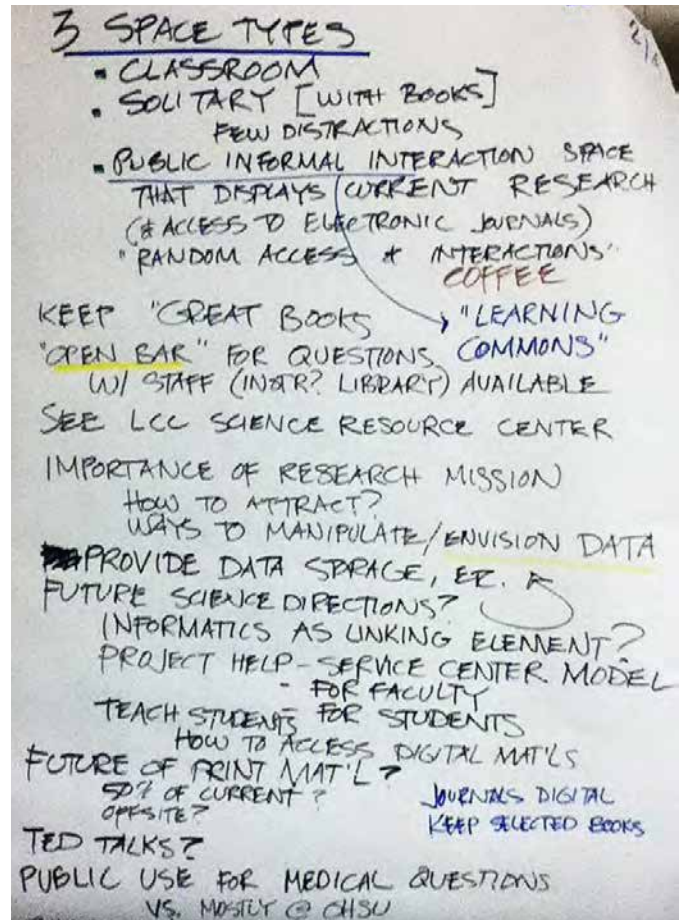 3 SPACE TYPES
2/
▪ CLASSROOM
▪ SOLITARY [WITH BOOKS]
FEW DISTRACTIONS
▪ PUBLIC INFORMAL INTERACTION SPACE
THAT DISPLAYS CURRENT RESEARCH
(& ACCESS TO ELECTRONIC JOURNALS)
"RANDOM ACCESS & INTERACTIONS"
COFFEE
KEEP "GREAT BOOKS
"LEARNING
COMMONS"
"OPEN BAR" FOR QUESTIONS
W/ STAFF (INSTR? LIBRARY) AVAILABLE
SEE LCC SCIENCE RESOURCE CENTER
IMPORTANCE OF RESEARCH MISSION
HOW TO ATTRACT?
WAYS TO MANIPULATE/ENVISION DATA
PROVIDE DATA STORAGE, ETC.
FUTURE SCIENCE DIRECTIONS?
INFORMATICS AS LINKING ELEMENT?
PROJECT HELP - SERVICE CENTER MODEL
- FOR FACULTY
TEACH STUDENTS FOR STUDENTS
HOW TO ACCESS DIGITAL MAT'LS
FUTURE OF PRINT MAT'L?
50% OF CURRENT?
OFFSITE?
JOURNALS DIGITAL
KEEP SELECTED BOOKS
TED TALKS?
PUBLIC USE FOR MEDICAL QUESTIONS
VS. MOSTLY @ OHSU